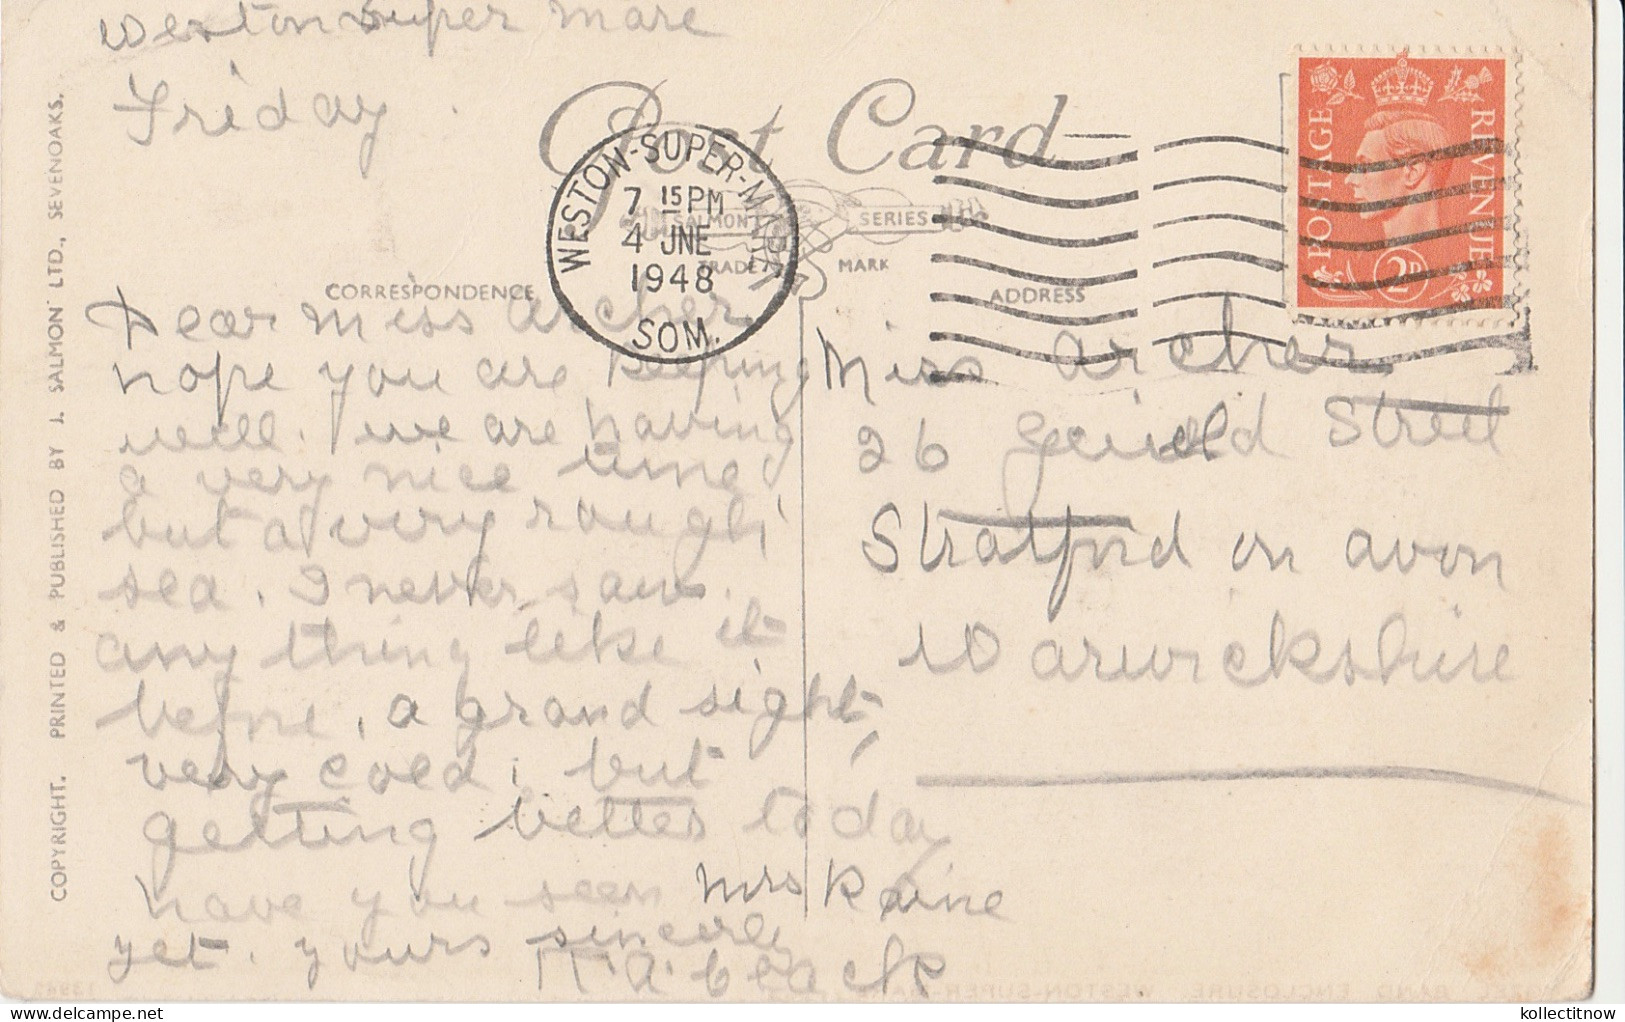 Weston super mare
Friday
Post Card
SALMON SERIES
TRADE MARK
CORRESPONDENCE
ADDRESS
WESTON-SUPER-MARE
7 15 PM
4 JNE
1948
SOM.
POSTAGE
REVENUE
2D
Dear Miss archer
hope you are keeping
well. we are having
a very nice time
but a very rough
sea. I never saw
any thing like it
before, a grand sight,
very cold, but
getting better today
have you seen Mrs Raine
yet. yours sincerly
A. Black
Miss archer
26 Street
Stratford on avon
Warwickshire
COPYRIGHT. PRINTED & PUBLISHED BY J. SALMON LTD., SEVENOAKS.
BAND ENCLOSURE, WESTON-SUPER-MARE
kollectitnow